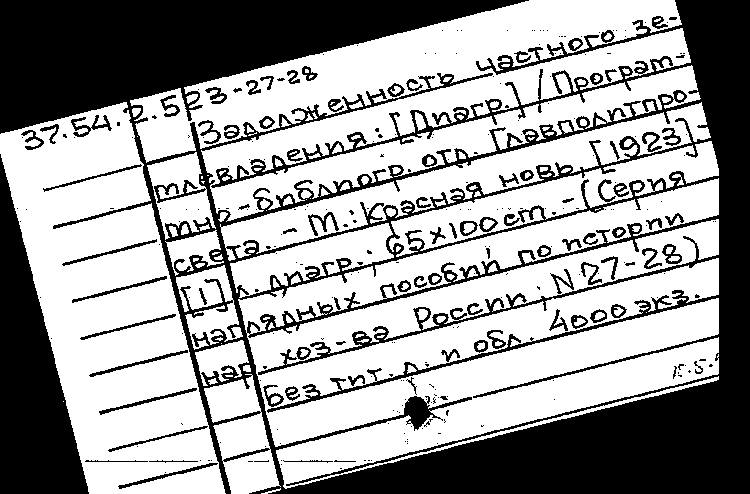 37.54.2.523-27-28
Задолженность частного зе-
млевладения: [Диагр.] / Програм-
мно-библиогр. отд. Главполитпро-
света. - М.: Красная новь, [1923]-
[1] л. диагр.; 65×100 cm. - (Серия
наглядных пособий по истории
нар. хоз-ва России; N 27-28)
Без тит. л. и обл. 4000 экз.